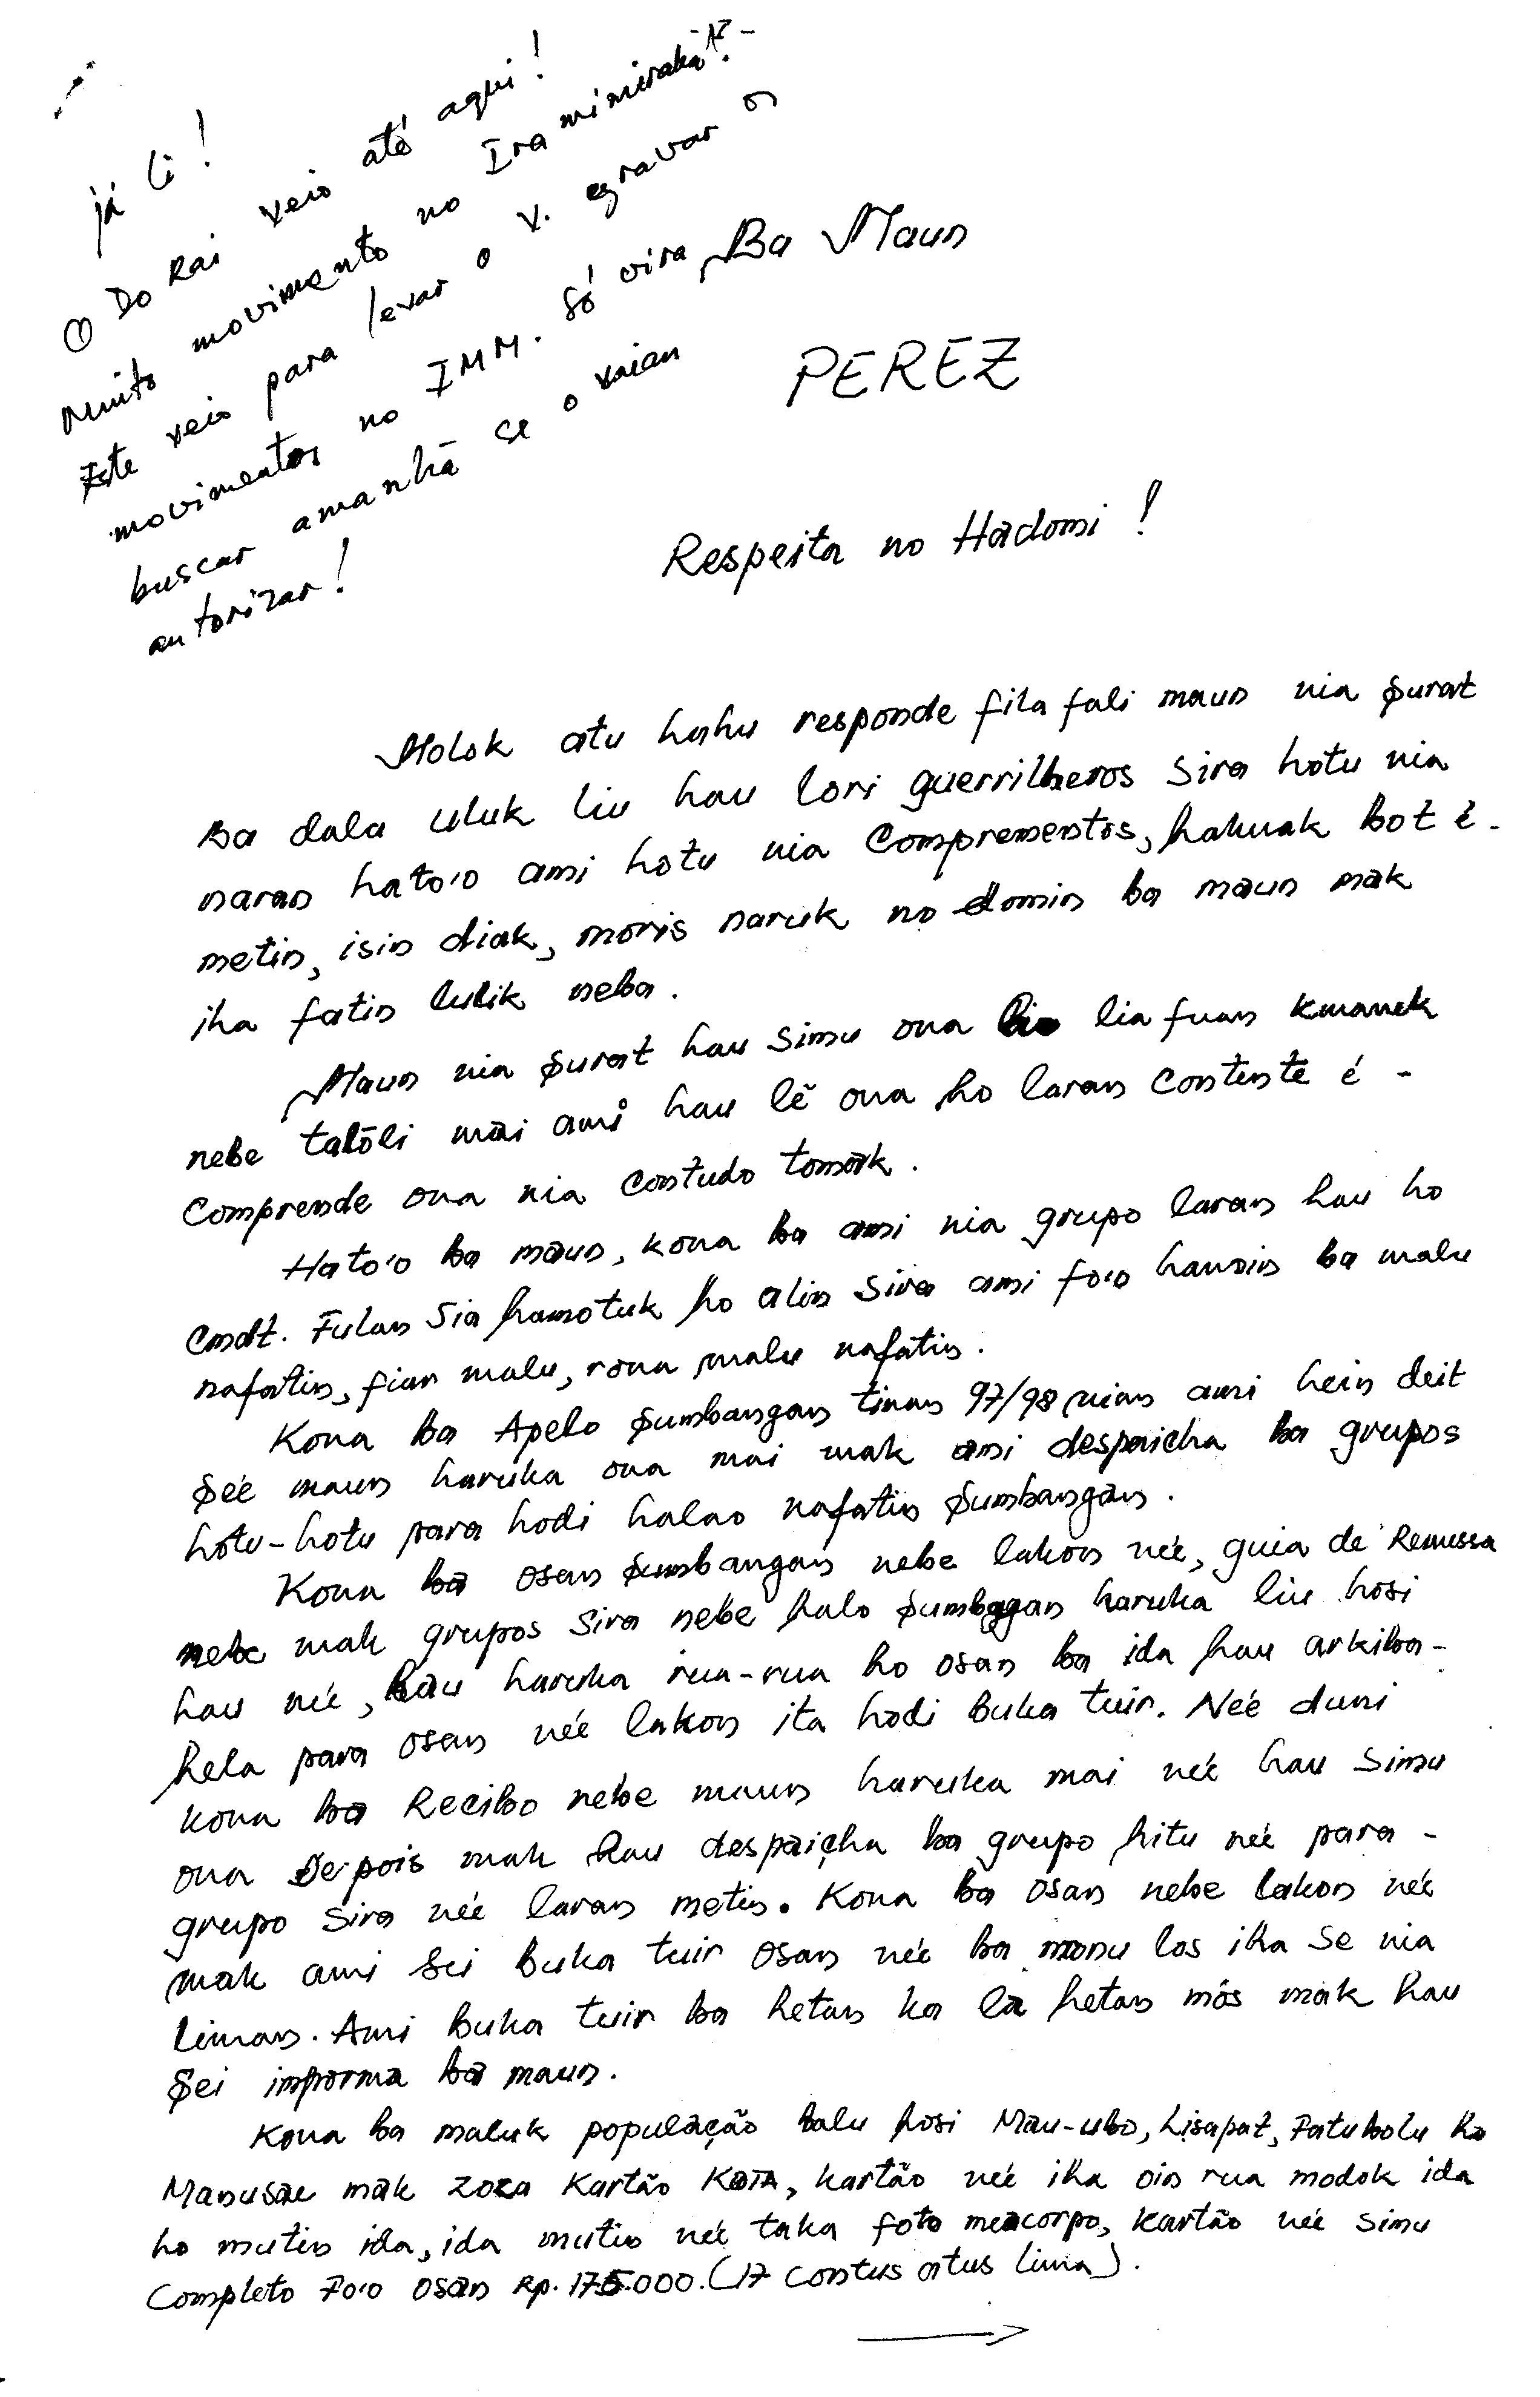 já li!
O Do Rai veio até aqui!
Muito movimento no Iramimiraka?
Este veio para levar o v. egravar os
movimentos no IMM. Só vira
buscar amanhã se o vaian
autorizar!
Ba Maun
PEREZ
Respeita no Hadomi!
Molok atu hahu responde fila fali maun nia surat
Ba dala uluk liu hau lori guerrilheros sira hotu nia
naran hato'o ami hotu nia Comprementos, hakuak bot é-
metin, isin diak, moris naruk no domin ba maun mak
iha fatin lulik neba.
Maun nia surat hau simu ona lia fuan kmanek
nebe tatoli mai ami hau lê ona ho laran contente é-
Comprende ona nia contudo tomak.
Hato'o ba maun, kona ba ami nia grupo laran hau ho
Cmdt. Fulan Sia hamotuk ho alin sira ami fo'o hanoin ba malu
nafatin, fiar malu, rona malu nafatin.
Kona ba Apelo sumbangan tinan 97/98 nian ami hein deit
seé maun haruka ona mai mak ami despaicha ba grupos
hotu-hotu para hodi halao nafatin sumbangan.
Kona ba osan sumbangan nebe lakon neé, guia de Remessa
nebe mak grupos sira nebe halo sumbagan haruka liu hosi
hau neé, hau haruka rua-rua ho osan ba ida hau arkiba-
hela para osan neé lakon ita hodi buka tuir. Neé duni
kona ba Recibo nebe maun haruka mai neé hau simu
ona Depois mak hau despaicha ba grupo hitu neé para-
grupo sira neé laran metin. Kona ba osan nebe lakon neé
mak ami sei buka tuir osan neé ba monu los iha se nia
liman. Ami buka tuir ba hetan ka la hetan mós mak hau
sei informa ba maun.
Kona ba maluk população balu hosi Mau-ubo, Lisapat, Fatubolu ho
Manusae mak zoza Kartão Kota, kartão neé iha oin rua modok ida
ho mutin ida, ida mutin neé taka foto meacorpo, kartão neé simu
Completo Fo'o osan Rp. 175.000. (17 contus atus lima).